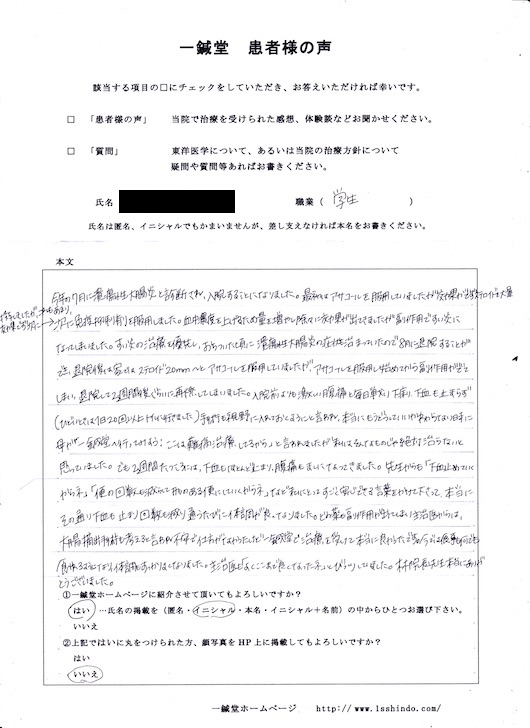 一鍼堂 患者様の声
該当する項目の□にチェックをしていただき、お答えいただければ幸いです。
□ 「患者様の声」 当院で治療を受けられた感想、体験談などお聞かせください。
□ 「質問」 東洋医学について、あるいは当院の治療方針について
疑問や質問等あればお書きください。
氏名 職業( 学生 )
氏名は匿名、イニシャルでもかまいませんが、差し支えなければ本名をお書きください。
本文
今年の7月に潰瘍性大腸炎と診断され、入院することになりました。最初はアサコールを服用していましたが効果が
を服用しました。血中濃度を上げるため量を増やし徐々に効果が出てきましたが副作用で
なってしまいました。 の治療を優先し、 潰瘍性大腸炎の症状 8月に退院することが
退院後は 20mmへとアサコールを服用していましたが、アサコールを服用し始めてから副作用が
しまい、退院して2週間後くらいに再燃してしまいました。入院前よりも激しい腹痛と毎日 下痢、下血も止まらず
(ひどいときは1日20回以上 ) 手術も視野に入れておくようにと言われ、本当にもうどうしていいかわからない日に
母が一鍼堂へ行ってみよう!ここは難病治療してるから」と言われましたが 絶対治らないと
思っていました。でも2週間たつころには、下血もほとんど止まり、腹痛もましになってきました。先生からも「下血止めていく
からネ」「便の回数も減らして形のある便にしていくからネ」など私にとってはすごく安心できる言葉をかけて下さって、本当に
その通り下血も止まり回数も減り通うたびに体調が良くなりました。どの薬も副作用が出てしまい主治医からは、
大腸摘出手術も考えると言われ 一鍼堂で治療を受けて本当に良かったです。
体調もすっかりよくなりました。主治医も「よくここまで良くなったネ」とびっくりしてました。林院長先生本当にありが
とうございました。
①一鍼堂ホームページに紹介させて頂いてもよろしいですか?
はい …氏名の掲載を(匿名・イニシャル・本名・イニシャル+名前)の中からひとつお選び下さい。
いいえ
②上記ではいに丸をつけられた方、顔写真をHP上に掲載してもよろしいですか?
はい
いいえ
一鍼堂ホームページ http://www.isshindo.com/